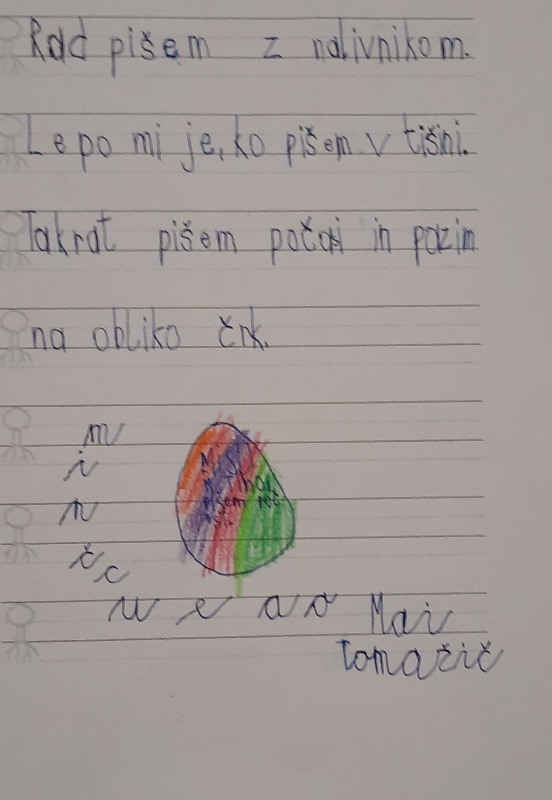 Rad pišem z nalivnikom.
Lepo mi je, ko pišem v tišini.
Takrat pišem počasi in pazim
na obliko črk.
m
i
n
č c
u e a o Mai
Tomažič